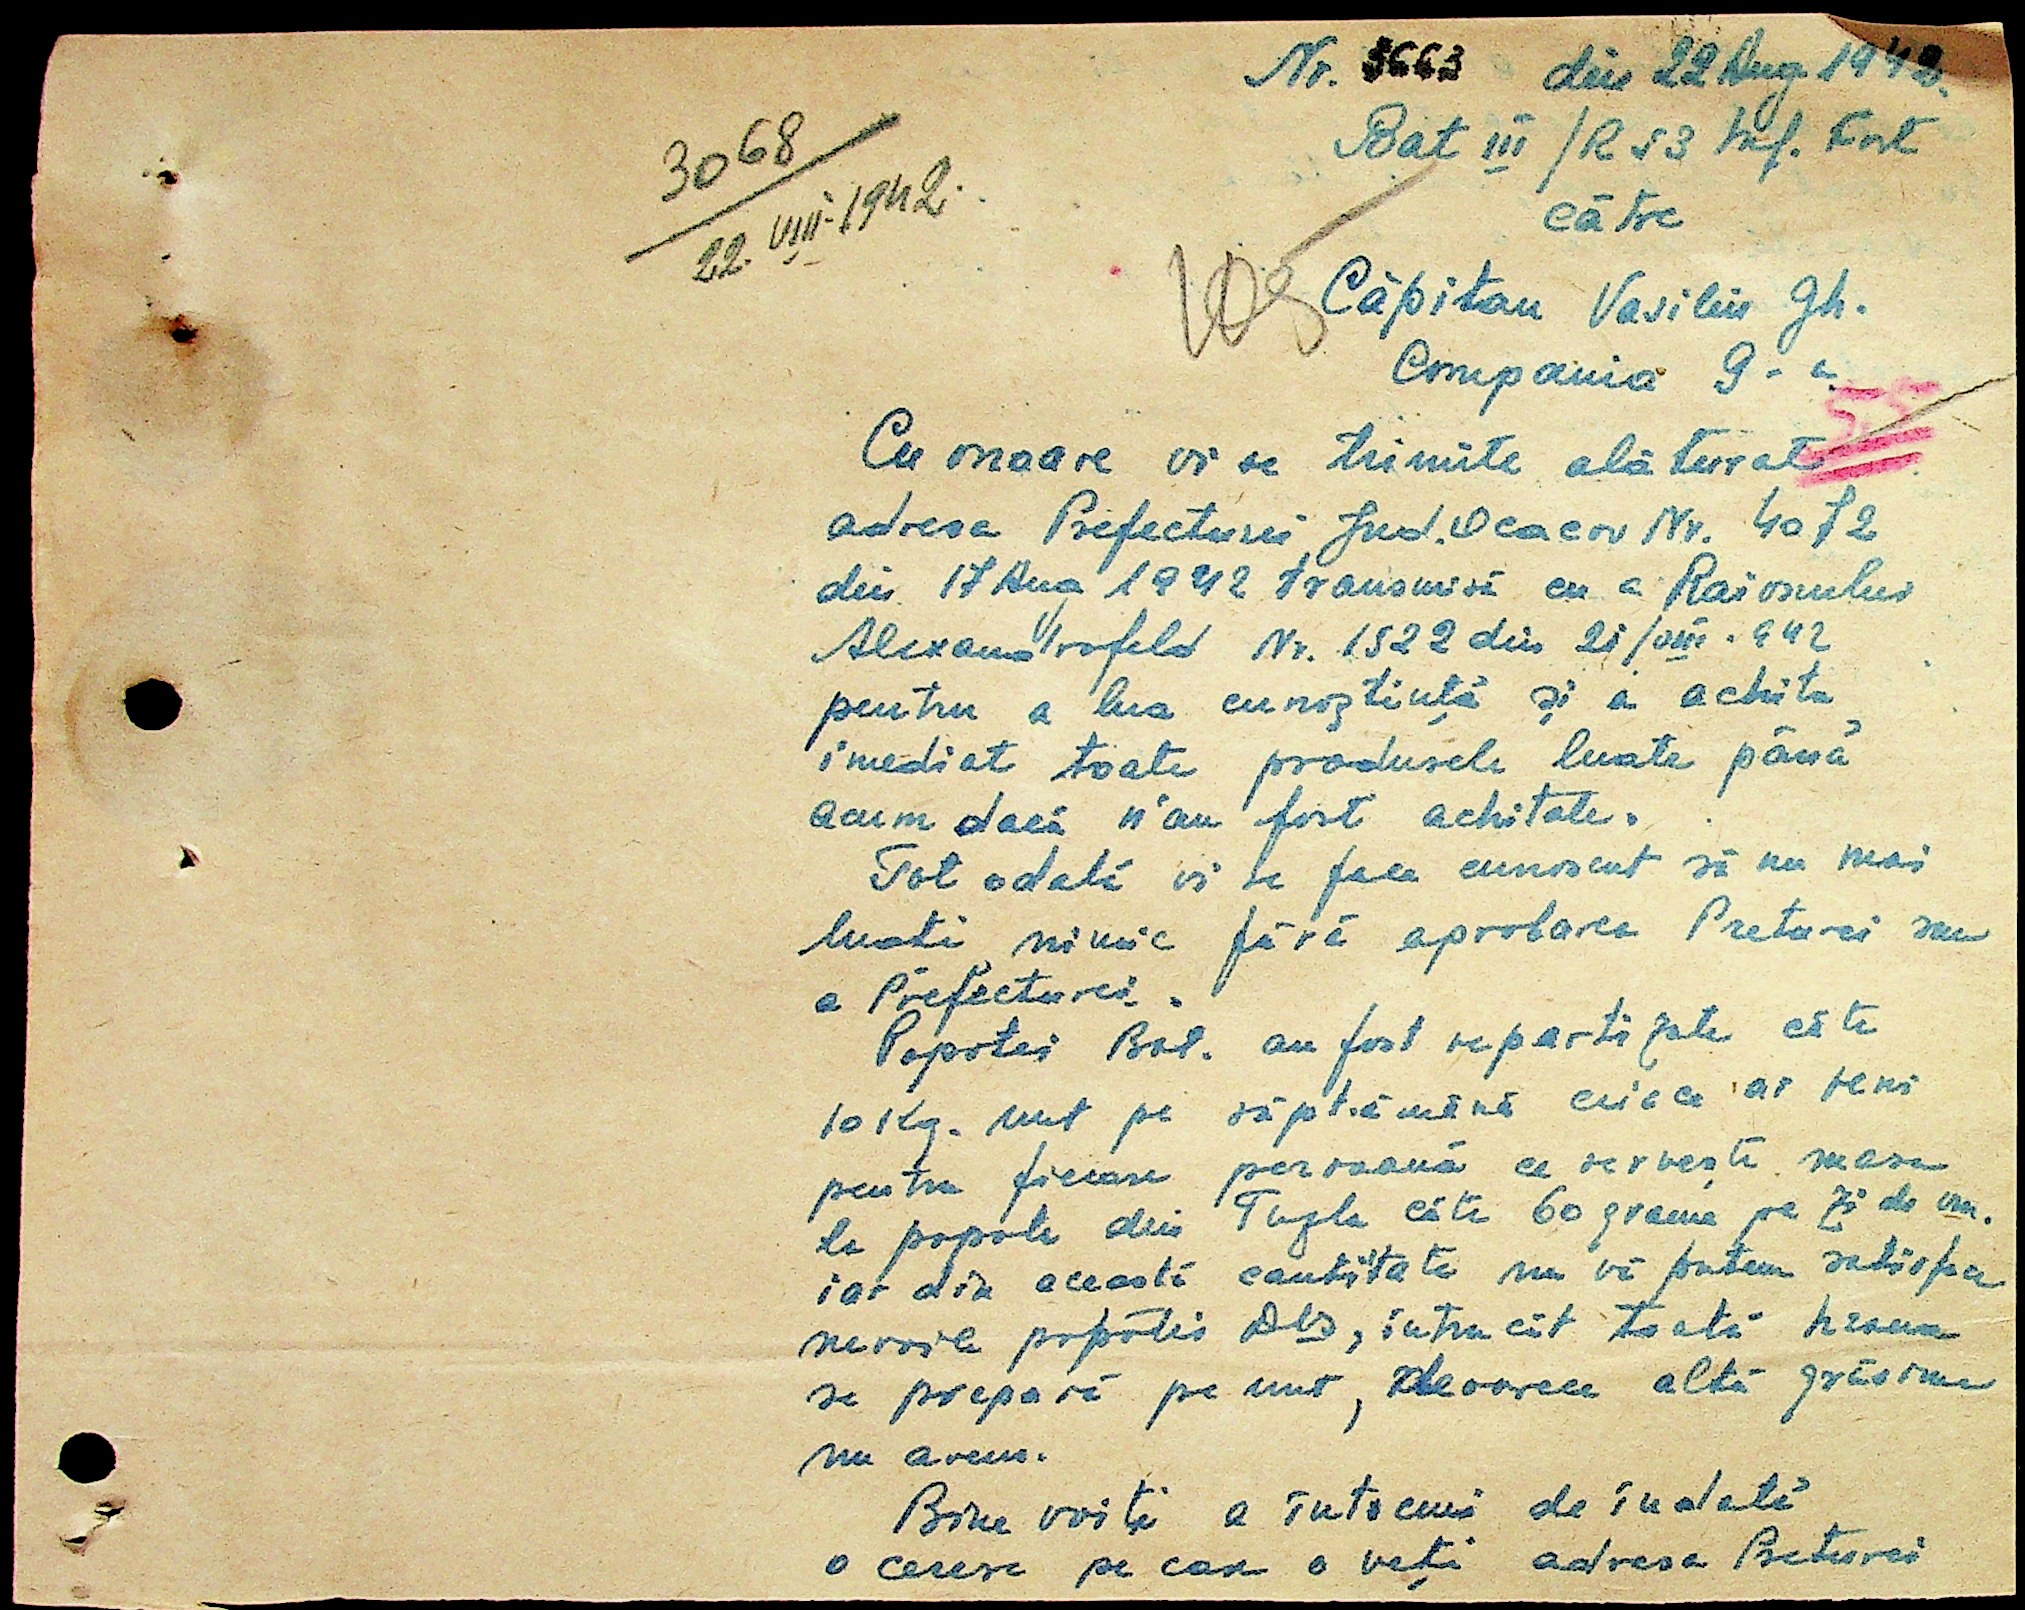 Nr. 3663 din 22 Aug 1942.
3068
22. VIII-1942.
Bat III /R 53 Inf. Fort
către
Căpitan Vasiliu Gh.
Compania 9-a
55
Cu onoare vi se trimite alăturat
adresa Prefecturii Jud. Oceacov Nr. 4072
din 17 Aug 1942 transmisă cu a Raionului
Alexandrofeld Nr. 1522 din 21/VIII.942
pentru a lua cunoștință și a achita
imediat toate produsele luate până
acum dacă n'au fost achitate.
Tot odată vi se face cunoscut să nu mai
luați nimic fără aprobarea Preturei sau
a Prefecturei.
Popotei Bat. au fost repartizate câte
10 Kg. unt pe săptămână ceiace ar veni
pentru fiecare persoană ce servește masa
la popota din Tuzla câte 60 grame pe zi de om.
iar din această cantitate nu vă putem satisface
nevoile popotei Dvs, întru cât toată hrana
se prepară pe unt, deoarece altă grăsime
nu avem.
Bine voiți a întocmi de îndată
o cerere pe care o veți adresa Preturei